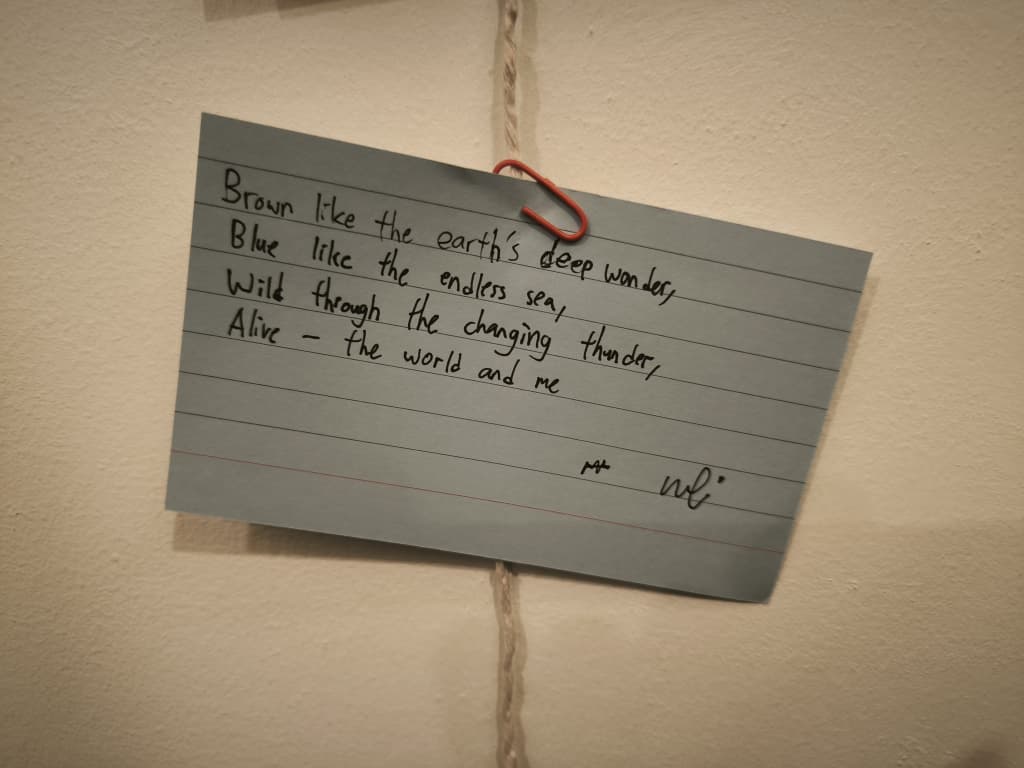 Brown like the earth's deep wonder,
Blue like the endless sea,
Wild through the changing thunder,
Alive – the world and me